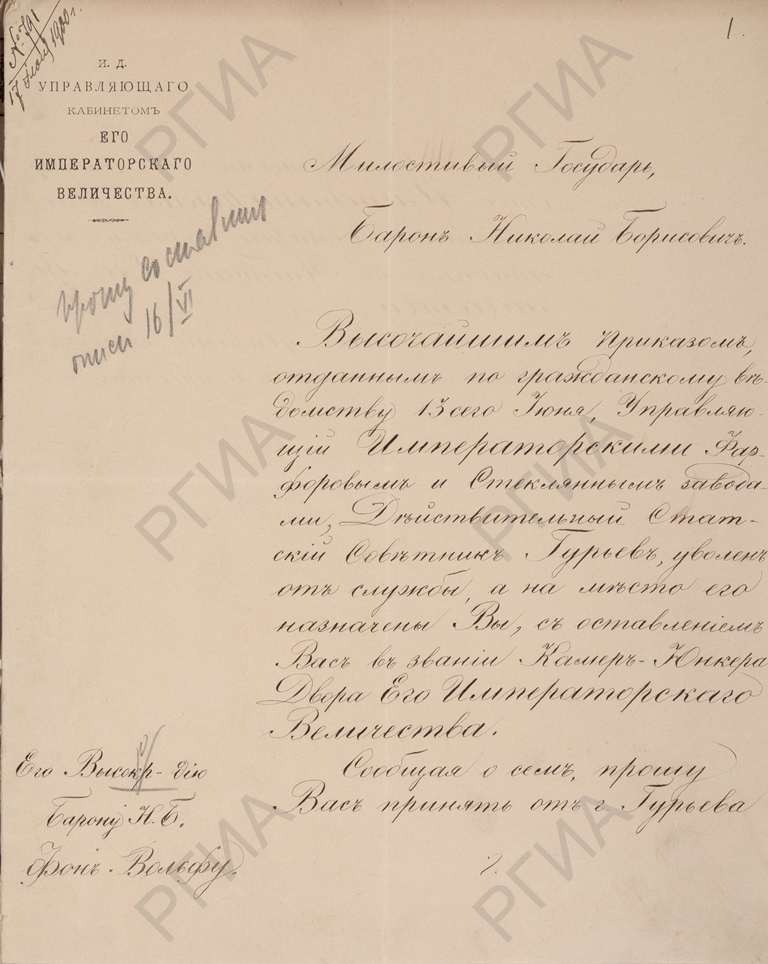 № 791
17 1900 г.
1.
И. Д.
УПРАВЛЯЮЩАГО
КАБИНЕТОМЪ
ЕГО
ИМПЕРАТОРСКАГО
ВЕЛИЧЕСТВА.
прошу составить
описи 16/VI
Милостивый Государь,
Баронъ Николай Борисовичъ.
Высочайшимъ приказомъ,
отданнымъ по гражданскому вѣ-
домству 13 сего Іюня, Управляю-
щій Императорскими Фар-
форовымъ и Стекляннымъ завода-
ми, Дѣйствительный Стат-
скій Совѣтникъ Гурьевъ, уволенъ
отъ службы, а на мѣсто его
назначены Вы, съ оставленіемъ
Васъ въ званіи Камеръ-Юнкера
Двора Его Императорскаго
Величества.
Сообщая о семъ, прошу
Васъ принять отъ г. Гурьева
Его Высокр-дію
Барону Н. Б.
Фонъ-Вольфу.
РГИА
РГИА
РГИА
РГИА
РГИА
РГИА